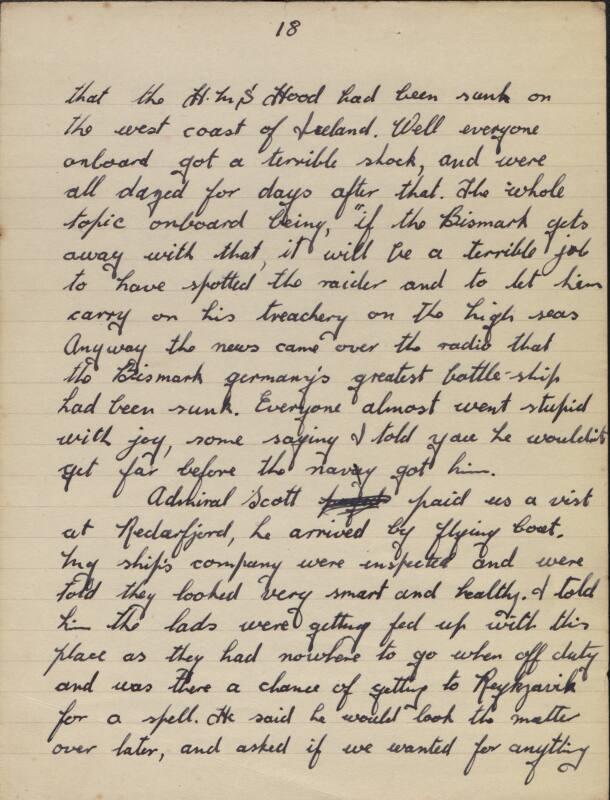 18
that the H.M,S Hood had been sunk on
the west coast of Iceland. Well everyone
onboard got a terrible shock, and were
all dazed for days after that. The whole
topic onboard being, "if the Bismark gets
away with that, it will be a terrible job
to have spotted the raider and to let him
carry on his treachery on the high seas
Anyway the news came over the radio that
the Bismark germany's greatest battle-ship
had been sunk. Everyone almost went stupid
with joy, some saying I told you he wouldn't
get far before the navy got him.
Admiral Scott paid us a vist
at Redarfjord, he arrived by flying boat.
My ship's company were inspected and were
told they looked very smart and healthy. I told
him the lads were getting fed up with this
place as they had nowhere to go when off duty
and was there a chance of getting to Reykjavik
for a spell. He said he would look the matter
over later, and asked if we wanted for anything